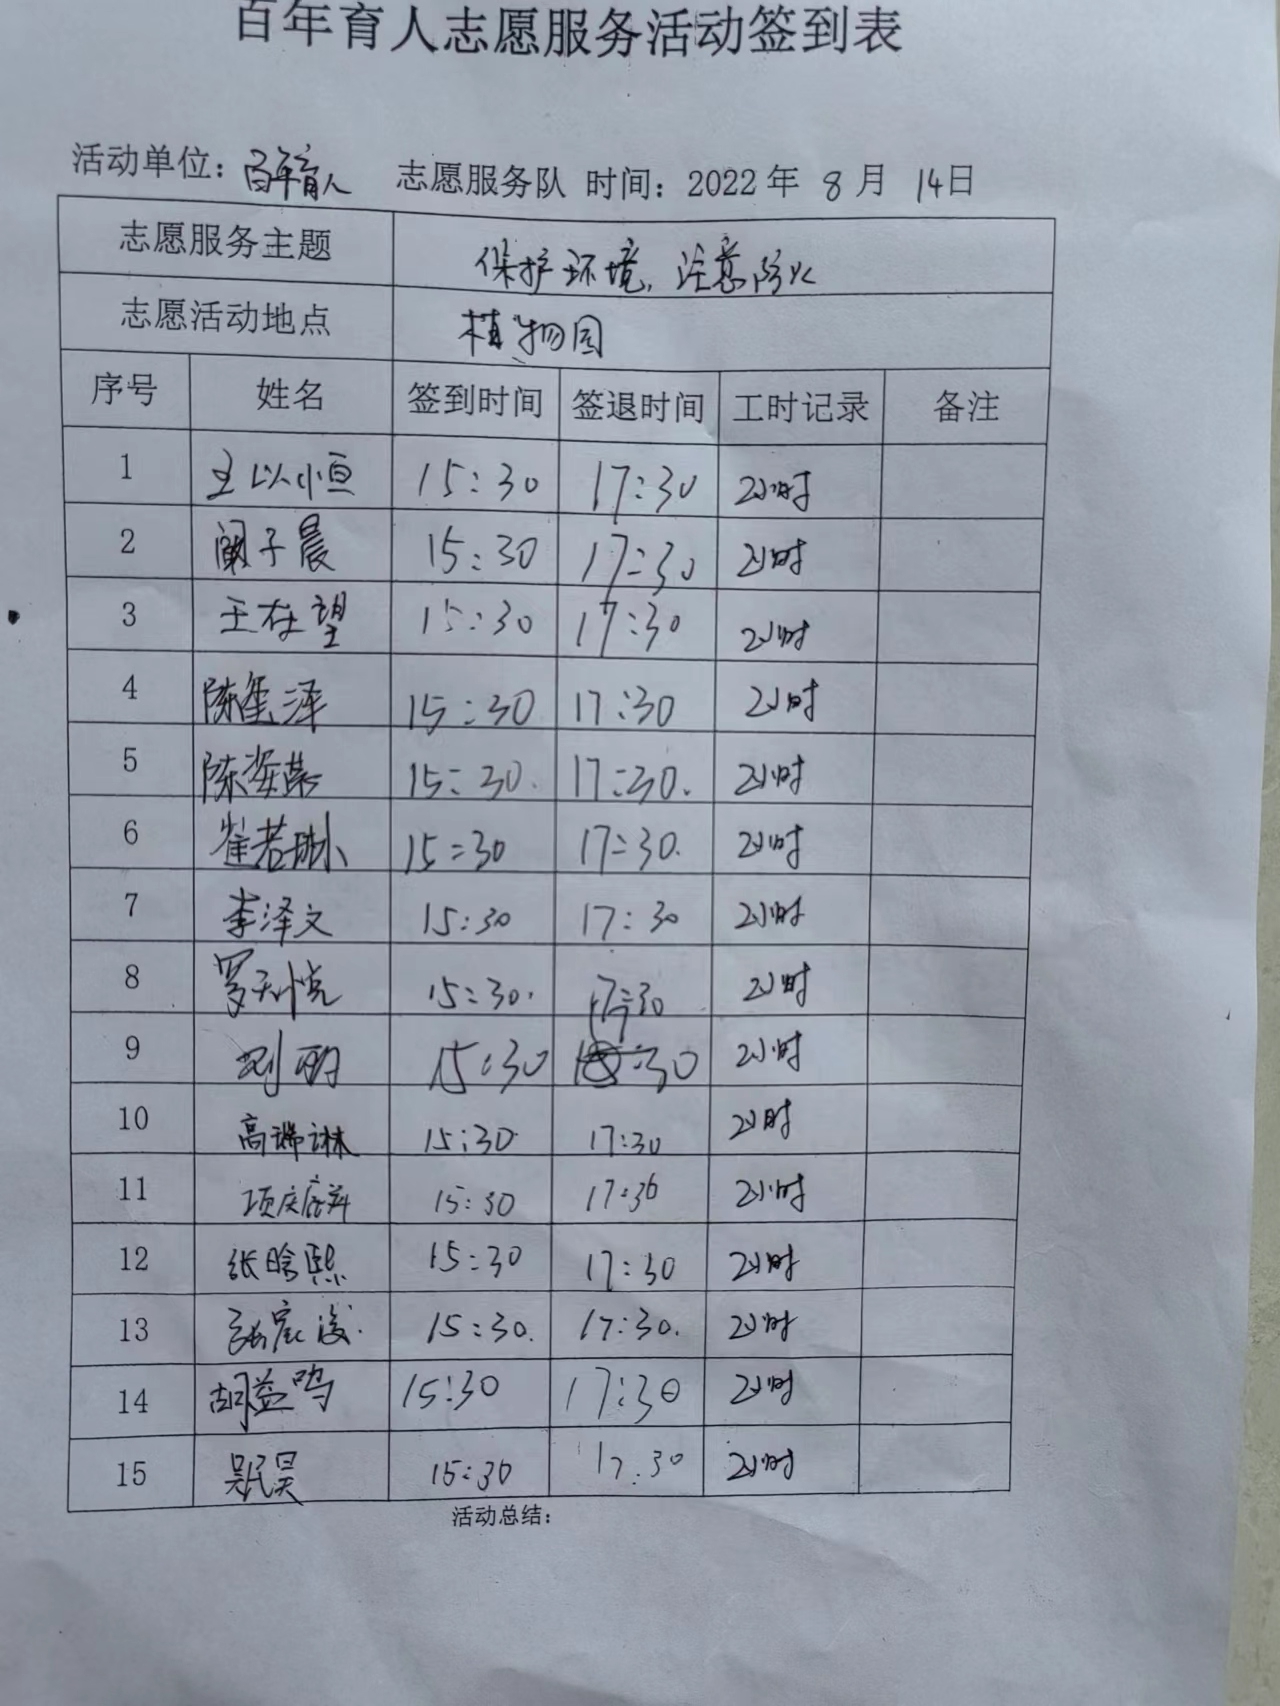 百年育人志愿服务活动签到表
活动单位：百年育人 志愿服务队 时间：2022年 8月 14日
志愿服务主题 保护环境，注意防火
志愿活动地点 植物园
序号 姓名 签到时间 签退时间 工时记录 备注
1 王以恒 15:30 17:30 2小时
2 阚子晨 15:30 17:30 2小时
3 王在望 15:30 17:30 2小时
4 陈玺泽 15:30 17:30 2小时
5 陈姿 15:30. 17:30. 2小时
6 崔若琳 15:30 17:30. 2小时
7 李泽文 15:30 17:30 2小时
8 罗天悦 15:30. 17:30 2小时
9 刘 15:30 17:30 2小时
10 高瑞琳 15:30 17:30 2小时
11 项庆 15:30 17:30 2小时
12 张晗熙 15:30 17:30 2小时
13 张宸 15:30. 17:30. 2小时
14 胡益鸣 15:30 17:30 2小时
15 吴民昊 15:30 17:30 2小时
活动总结：